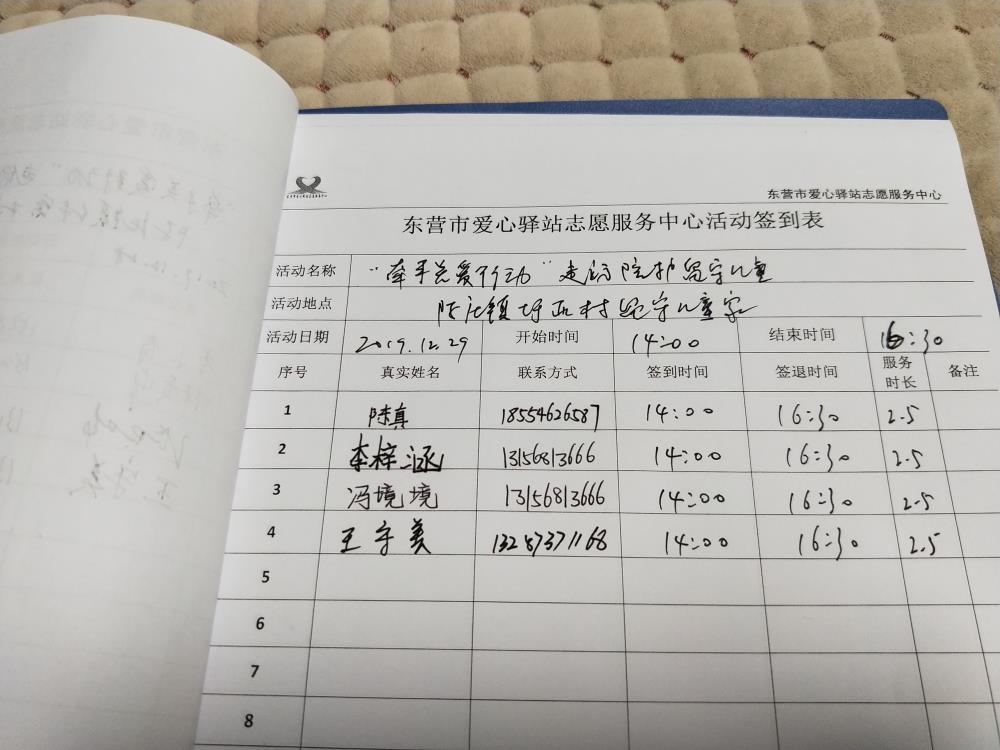 东营市爱心驿站志愿服务中心
东营市爱心驿站志愿服务中心活动签到表
活动名称 “牵手关爱行动”走访陪护留守儿童
活动地点 陈庄镇 村留守儿童家
活动日期 2019.12.29 开始时间 14:00 结束时间 16:30
序号 真实姓名 联系方式 签到时间 签退时间 服务时长 备注
1 陆真 18554626587 14:00 16:30 2.5
2 李梓涵 13156813666 14:00 16:30 2.5
3 冯境境 13156813666 14:00 16:30 2.5
4 王守美 13287371168 14:00 16:30 2.5
5
6
7
8